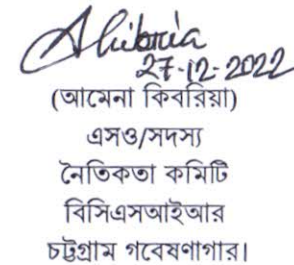 Akibria
27-12-2022
(আমেনা কিবরিয়া)
এসও/সদস্য
নৈতিকতা কমিটি
বিসিএসআইআর
চট্টগ্রাম গবেষণাগার।